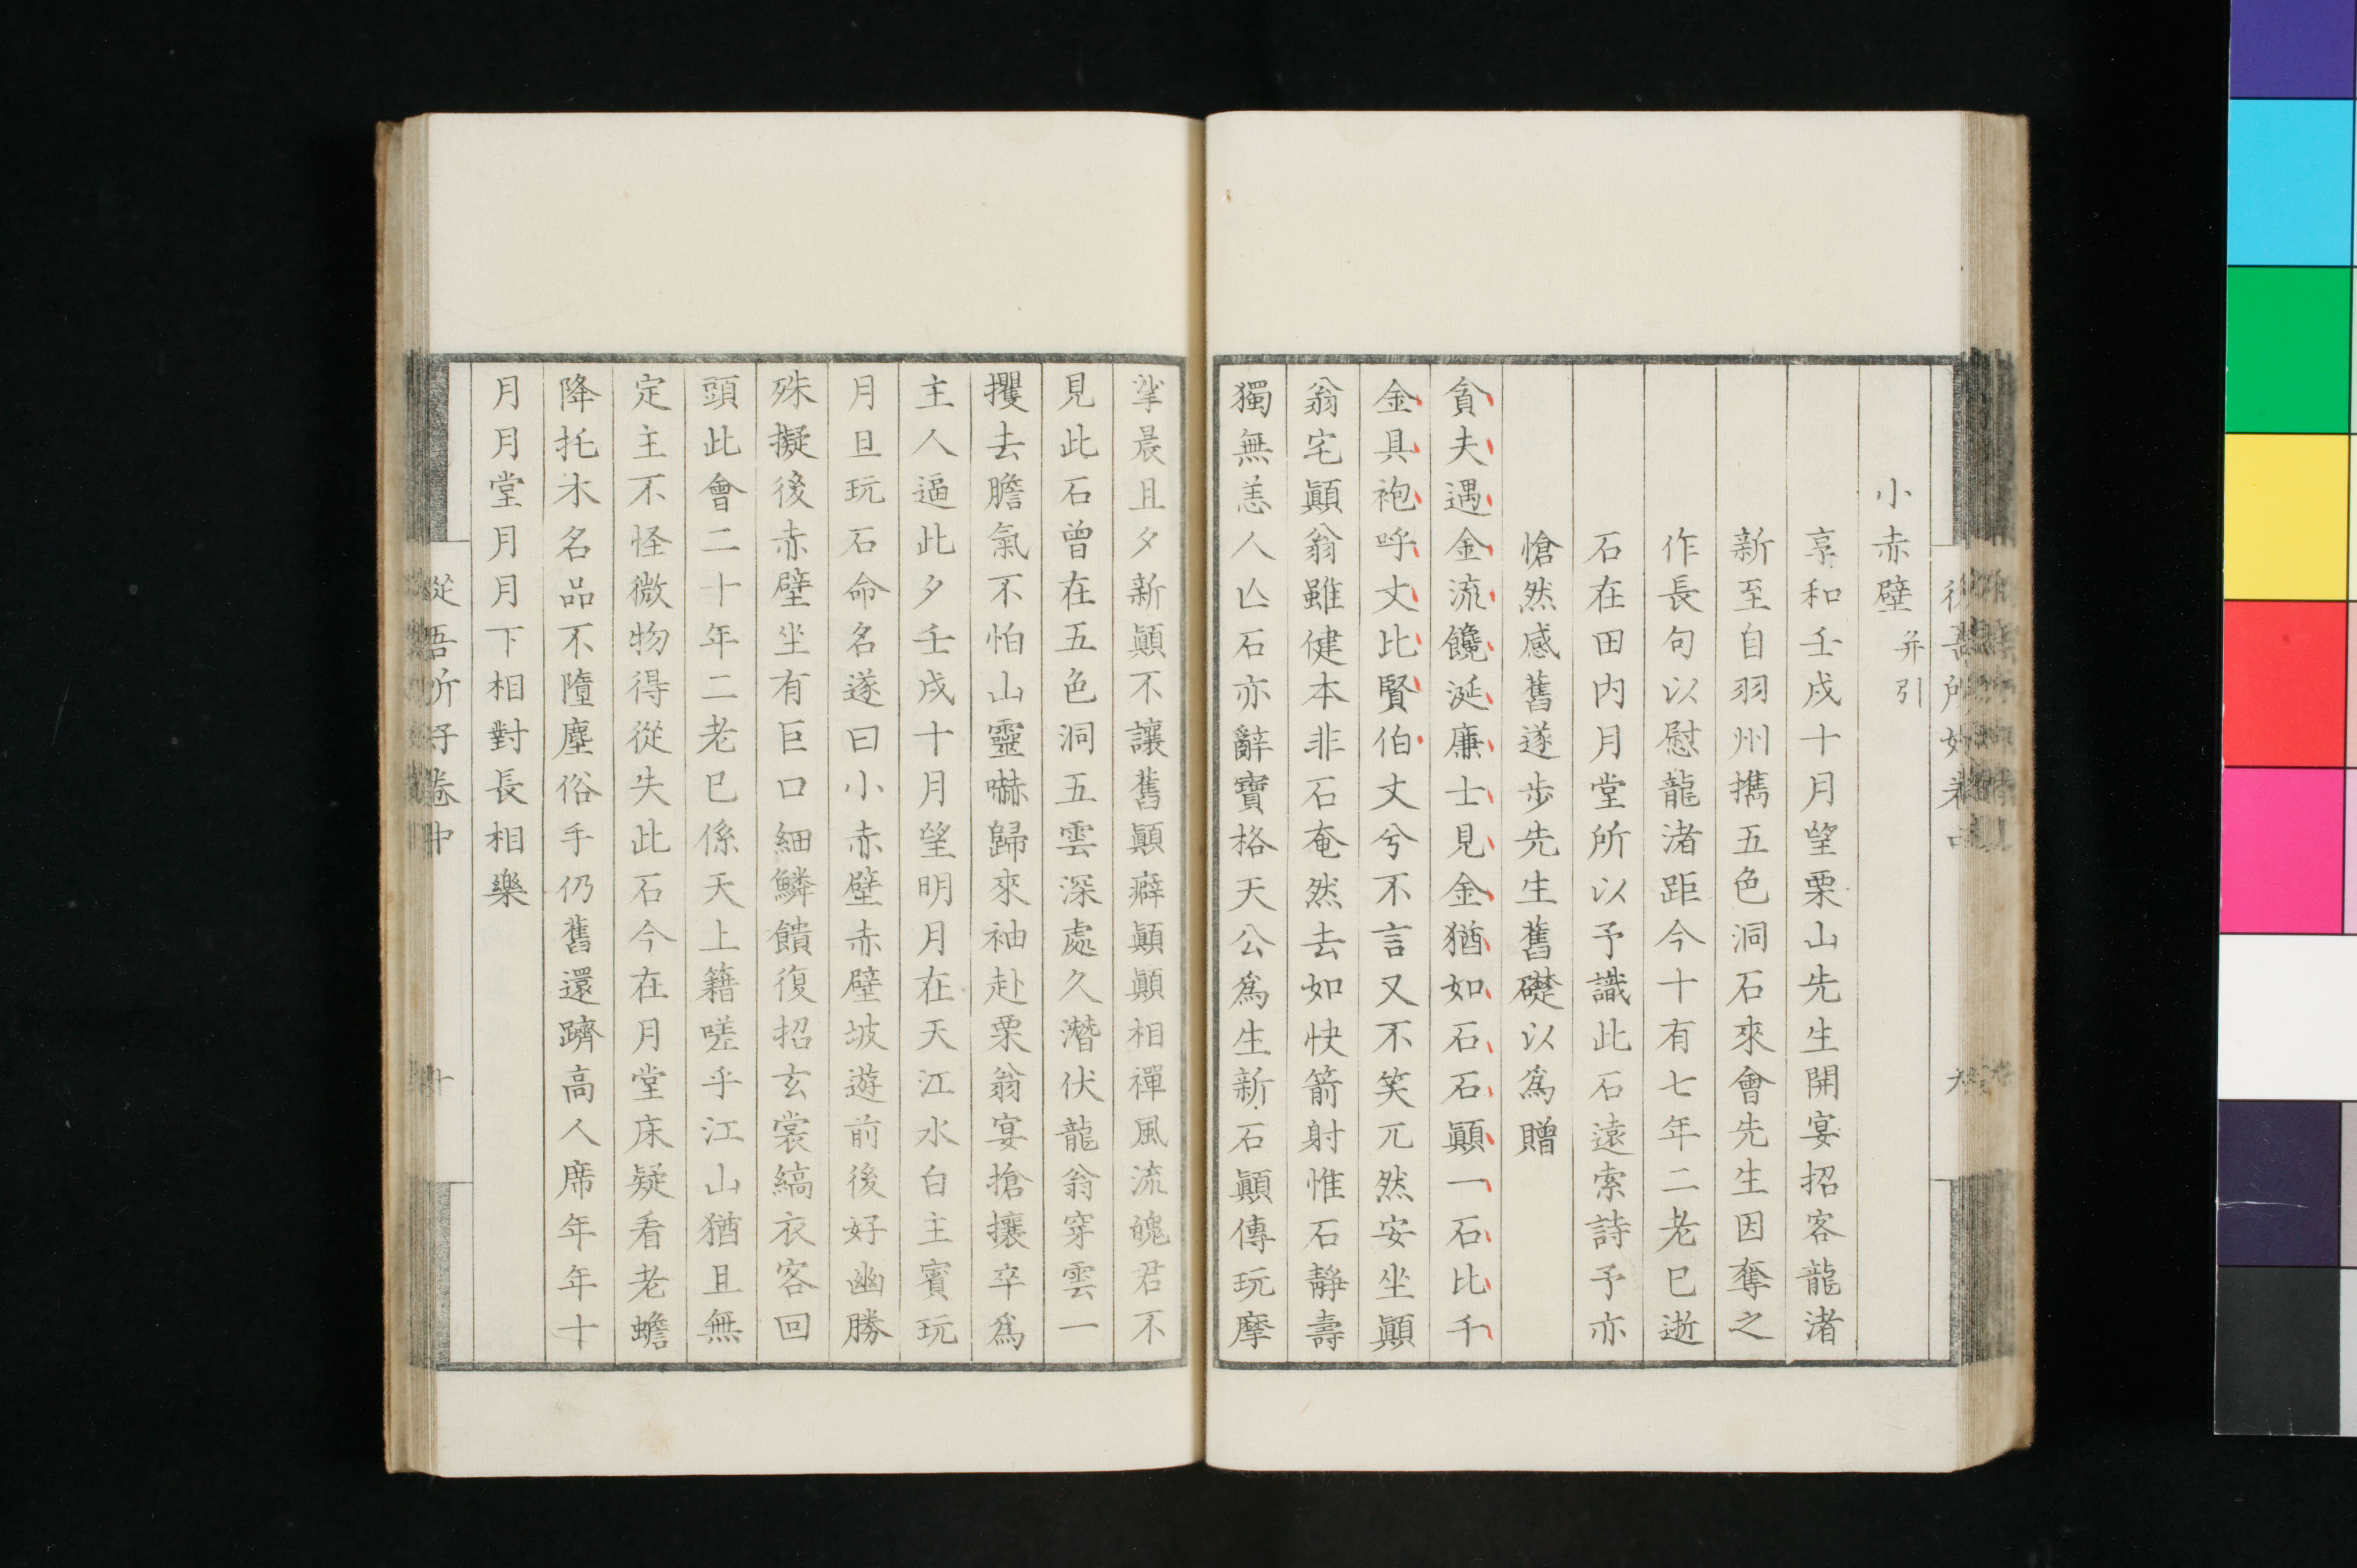 小赤壁并引
享和壬戌十月望栗山先生開宴招客龍渚
新至自羽州攜五色洞石來會先生因奪之
作長句以慰龍渚距今十有七年二老已逝
石在田内月堂所以予識此石遠索詩予亦
愴然感舊遂步先生舊礎以爲贈
貪夫遇金流饞涎廉士見金猶如石石顚一石比千
金具袍呼丈比賢伯丈兮不言又不笑兀然安坐顚
翁宅顚翁雖健本非石奄然去如快箭射惟石靜壽
獨無恙人亡石亦辭寶格天公爲生新石顚傳玩摩
挲晨且夕新顚不讓舊顚癖顚顚相禪風流魄君不
見此石曾在五色洞五雲深處久潛伏龍翁穿雲一
攫去膽氣不怕山靈嚇歸來袖赴栗翁宴搶攘卒爲
主人逼此夕壬戌十月望明月在天江水白主賓玩
月且玩石命名遂曰小赤壁赤壁坡遊前後好幽勝
殊擬後赤壁坐有巨口細鱗饋復招玄裳縞衣客回
頭此會二十年二老已係天上籍嗟乎江山猶且無
定主不怪微物得從失此石今在月堂床疑看老蟾
降托木名品不墮塵俗手仍舊還躋高人席年年十
月月堂月月下相對長相樂
從吾所好卷中
十